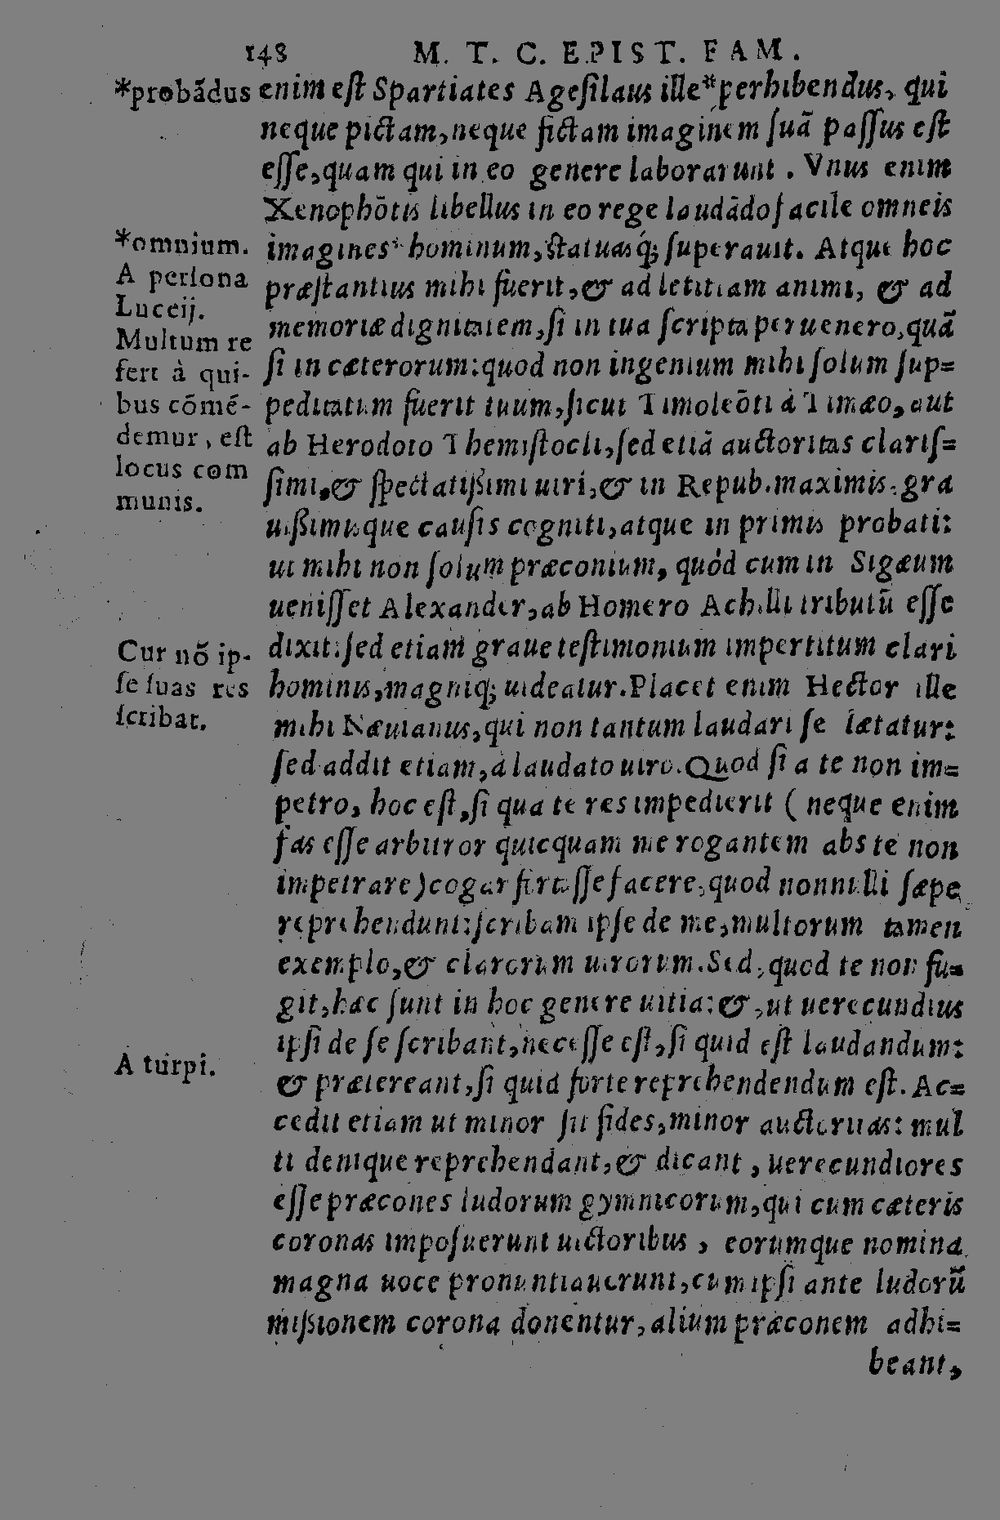 148 M. T. C. EPIST. FAM.
*probādus enim eſt Spartiates Ageſilaus ille*perhibendus, qui
neque pictam,neque fictam imaginem ſuā paſſus eſt
eſſe,quam qui in eo genere laborarunt . Vnus enim
Xenophōtis libellus in eo rege laudādo facile omneis
*omnium. imagines* hominum,ſtatuasq́; ſuperauit. Atque hoc
A perſona præſtantius mihi fuerit,& ad letitiam animi, & ad
Lucceij. memoriæ dignitatem,ſi in tua ſcripta peruenero,quā
Multum re ſi in cæterorum:quod non ingenium mihi ſolum ſup=
fert à qui- peditatum fuerit tuum,ſicut Timoleōti à Timæo, aut
bus cōmē- ab Herodoto Themiſtocli,ſed etiā auctoritas clariſ=
demur, eſt ſimi,& ſpectatißimi uiri,& in Repub.maximis,gra
locus com uißimisque cauſis cogniti,atque in primis probati:
munis. ut mihi non ſolum præconium, quòd cum in Sigæum
ueniſſet Alexander,ab Homero Achilli tributū eſſe
dixit:ſed etiam graue teſtimonium impertitum clari
Cur nō ip- hominis,magniq; uideatur.Placet enim Hector ille
ſe ſuas res mihi Næuianus,qui non tantum laudari ſe lætatur:
ſcribat. ſed addit etiam,à laudato uiro.Quod ſi a te non im=
petro, hoc eſt,ſi qua te res impedierit ( neque enim
fas eſſe arbitror quicquam me rogantem abs te non
impetrare)cogar fortaſſe facere,quod nonnulli ſæpe
reprehendunt:ſcribam ipſe de me,multorum tamen
exemplo,& clarorum uirorum.Sed,quod te non fu=
git,hæc ſunt in hoc genere uitia:&,ut uerecundius
ipſi de ſe ſcribant,neceſſe eſt,ſi quid eſt laudandum:
A turpi. & prætereant,ſi quid forte reprehendendum eſt. Ac=
cedit etiam ut minor ſit fides,minor auctoritas: mul
ti denique reprehendant,& dicant , uerecundiores
eſſe præcones ludorum gymnicorum,qui cum cæteris
coronas impoſuerunt uictoribus , eorumque nomina
magna uoce pronuntiauerunt,cum ipſi ante ludorū
mißionem corona donentur,alium præconem adhi=
beant,